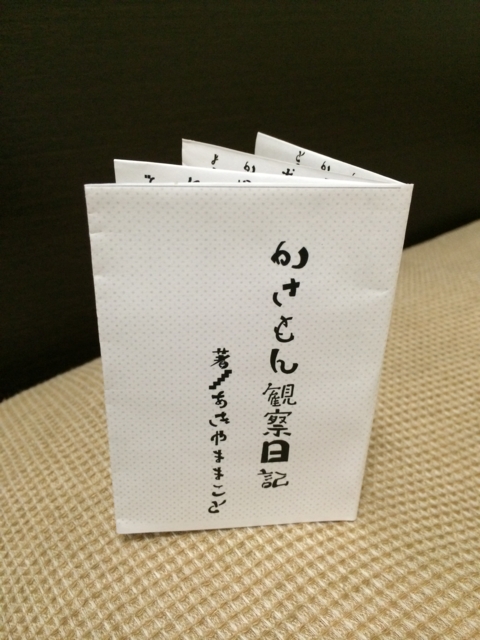 かさもん観察日記
著/あきやままこと